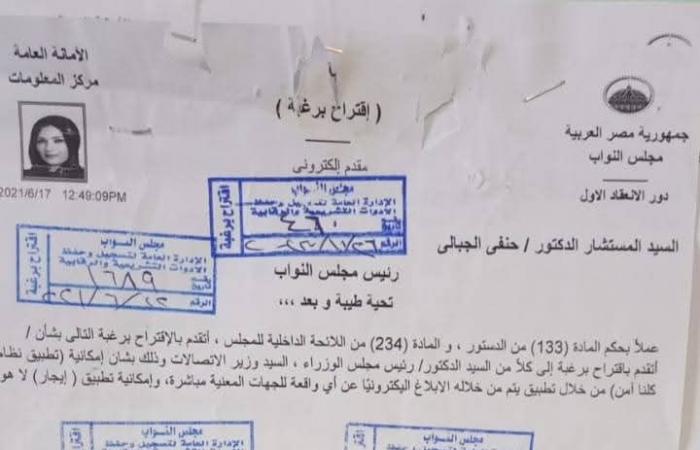 الأمانة العامة
مركز المعلومات
2021/6/17 12:49:09PM
( إقتراح برغبة )
مقدم إلكترونى
جمهورية مصر العربية
مجلس النواب
دور الانعقاد الاول
مجلس النواب
الإدارة العامة لتسجيل وحفظ
الادوات التشريعية والرقابية
الرقم
إقتراح برغبة
مجلس النواب
الإدارة العامة لتسجيل وحفظ
الادوات التشريعية والرقابية
١٦٨٩
الرقم
إقتراح برغبة
السيد المستشار الدكتور / حنفى الجبالى
رئيس مجلس النواب
تحية طيبة و بعد ،،،
عملاً بحكم المادة (133) من الدستور ، و المادة (234) من اللائحة الداخلية للمجلس ، أتقدم بالإقتراح برغبة التالى بشأن /
أتقدم باقتراح برغبة إلى كلاً من السيد الدكتور/ رئيس مجلس الوزراء ، السيد وزير الاتصالات وذلك بشان إمكانية (تطبيق نظام
كلنا أمن) من خلال تطبيق يتم من خلاله الابلاغ اليكترونيًا عن أي واقعة للجهات المعنية مباشرة، وإمكانية تطبيق ( إيجار) لا هو
مجلس النواب
الإدارة العامة لتسجيل وحفظ
مجلس النواب
الإدارة العامة لتسجيل وحفظ